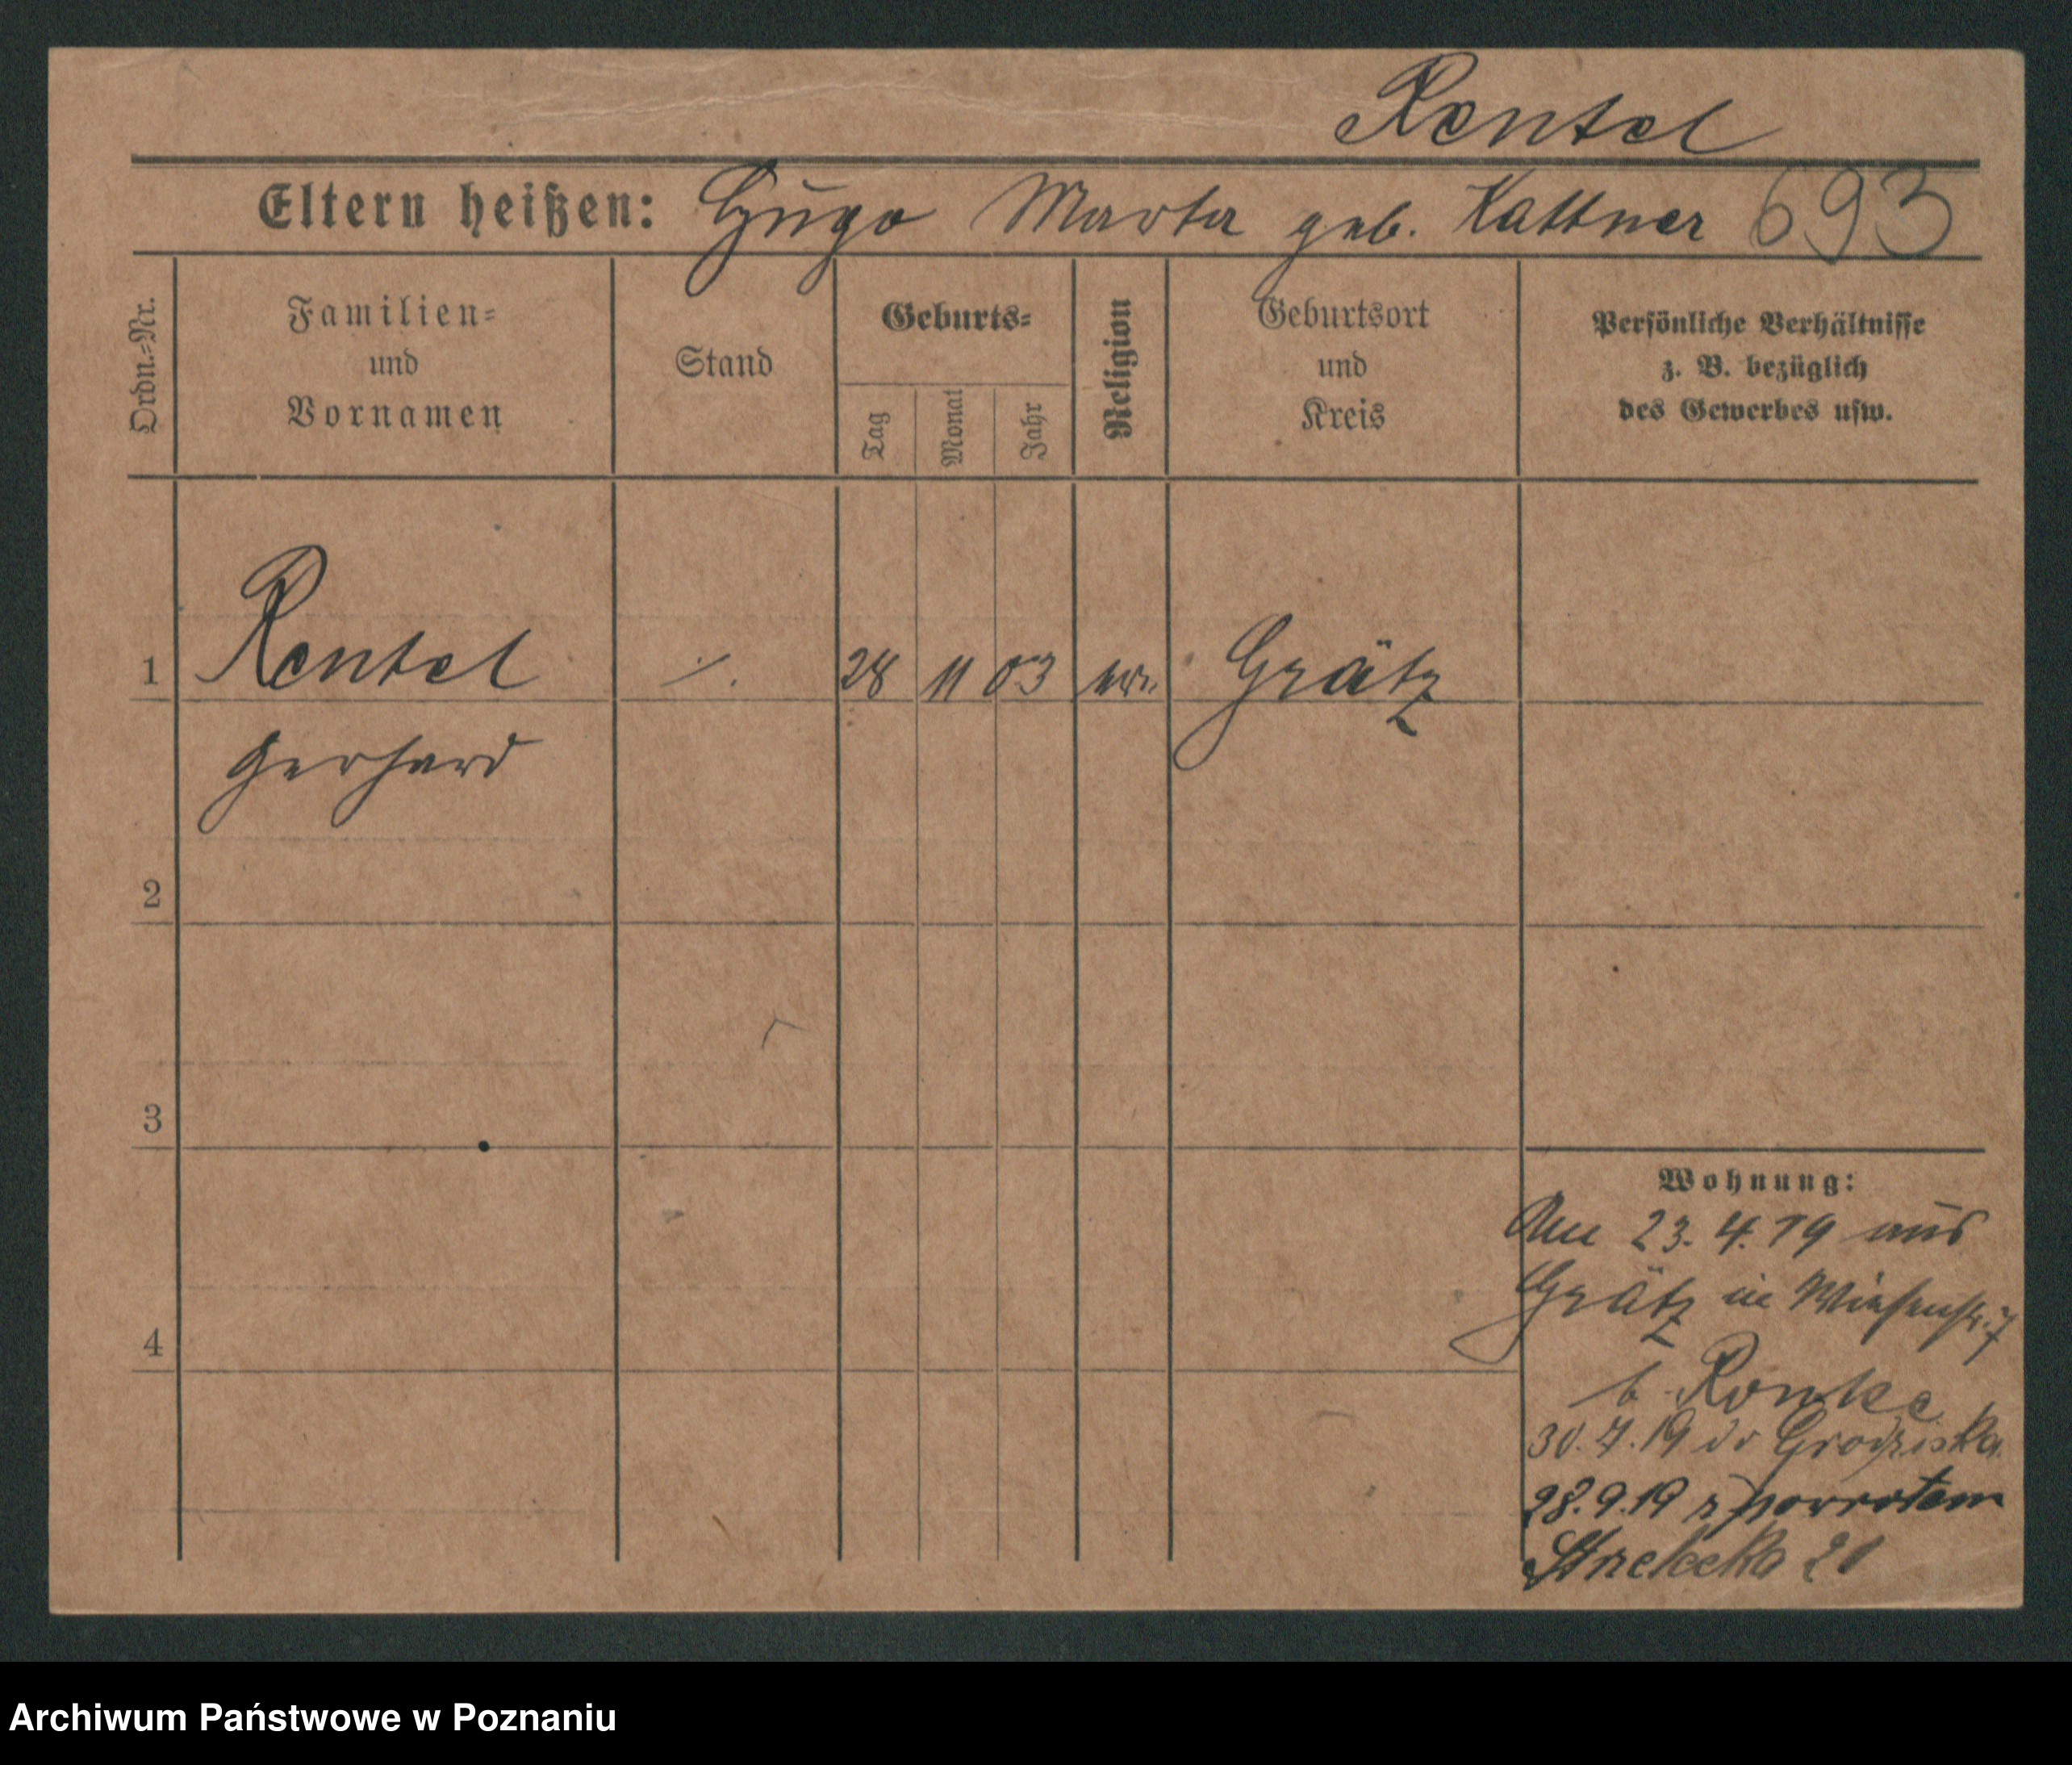 Rentel
Eltern heißen: Hugo Marta geb. Kattner 693
Ordn.-Nr.
Familien-
und
Vornamen
Stand
Geburts-
Tag
Monat
Jahr
Religion
Geburtsort
und
Kreis
Persönliche Verhältnisse
z. B. bezüglich
des Gewerbes usw.
1 Rentel ·/. 28 11 03 ev. Grätz
Gerhard
2
3
4
Wohnung:
23.4.19 aus
Grätz in Wiesenstr. 7
b.
30.7.19 do Grodziska
28.9.19 z powrotem
Strzelecka 21
Archiwum Państwowe w Poznaniu